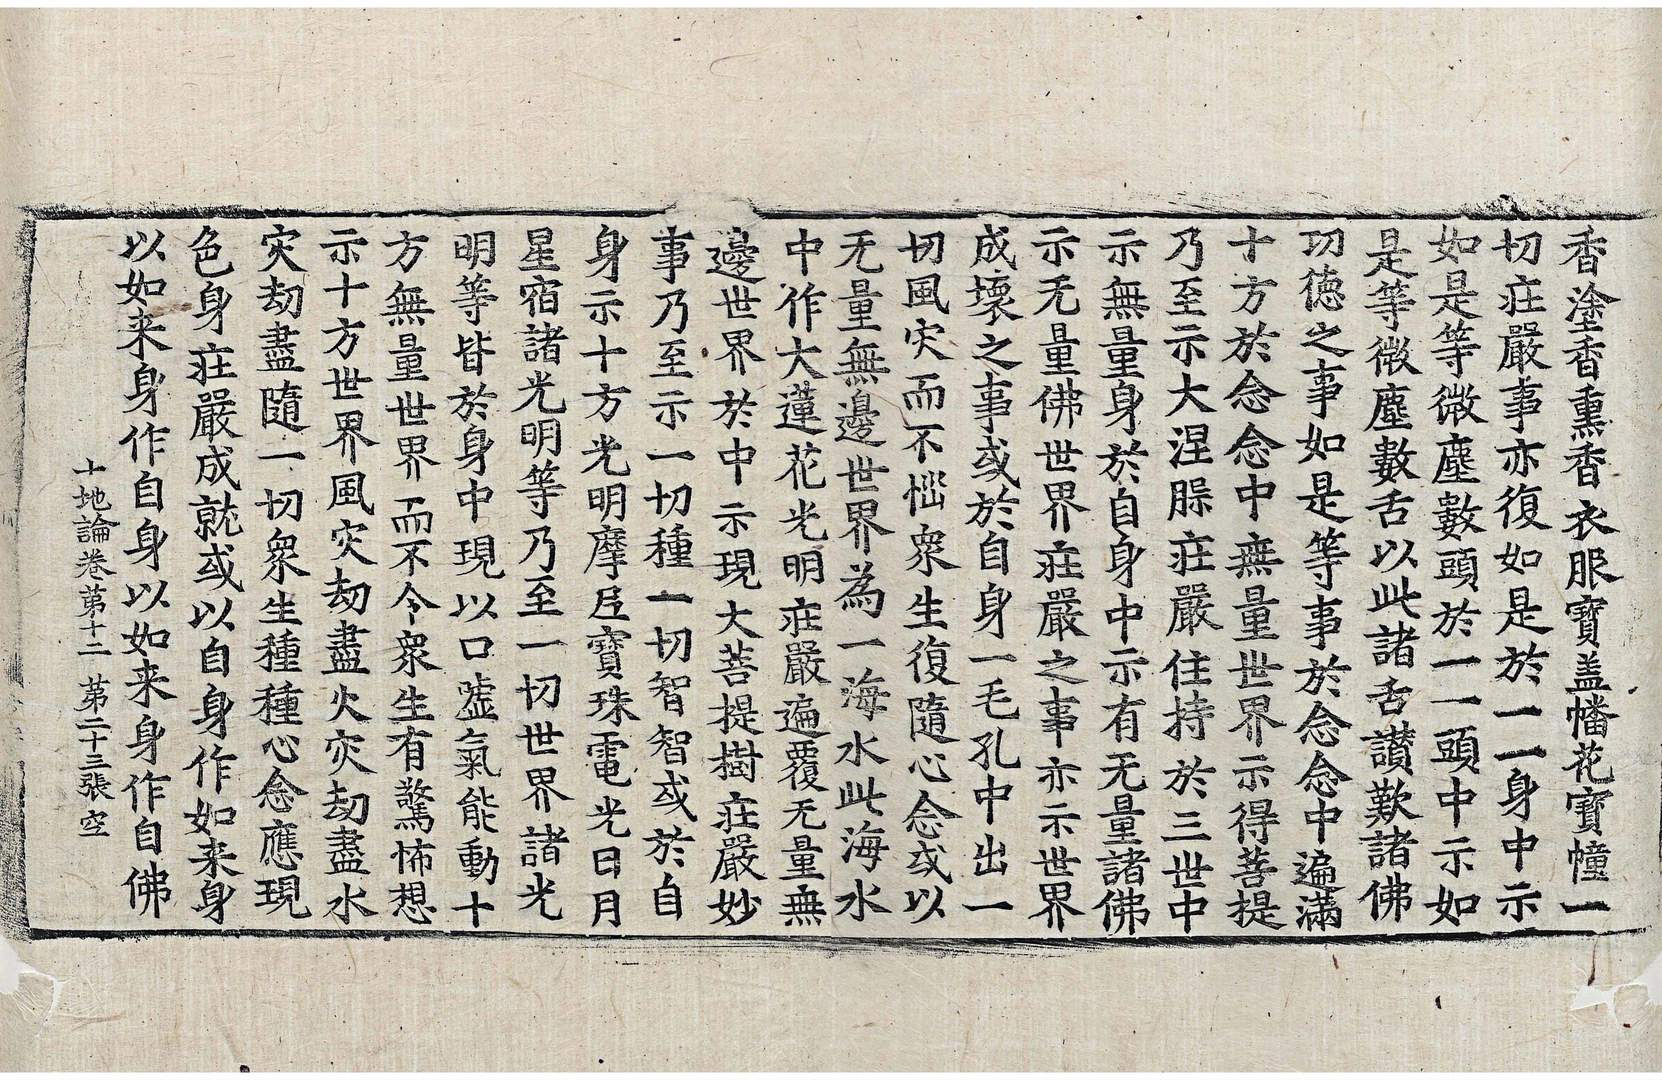 香塗香熏香衣服寶盖幡花寶幢一
切莊嚴事亦復如是於一一身中示
如是等微塵數頭於一一頭中示如
是等微塵數舌以此諸舌讃歎諸佛
功德之事如是等事於念念中遍滿
十方於念念中無量世界示得菩提
乃至示大涅槃莊嚴住持於三世中
示無量身於自身中示有无量諸佛
示无量佛世界莊嚴之事亦示世界
成壞之事或於自身一毛孔中出一
切風灾而不惱衆生復隨心念或以
无量無邊世界為一海水此海水
中作大蓮花光明莊嚴遍覆无量無
邊世界於中示現大菩提樹莊嚴妙
事乃至示一切種一切智智或於自
身示十方光明摩尼寶珠電光日月
星宿諸光明等乃至一切世界諸光
明等皆於身中現以口噓氣能動十
方無量世界而不令衆生有驚怖想
示十方世界風灾劫盡火灾劫盡水
灾劫盡隨一切衆生種種心念應現
色身莊嚴成就或以自身作如来身
以如来身作自身以如来身作自佛
十地論卷第十二 第二十三張 空